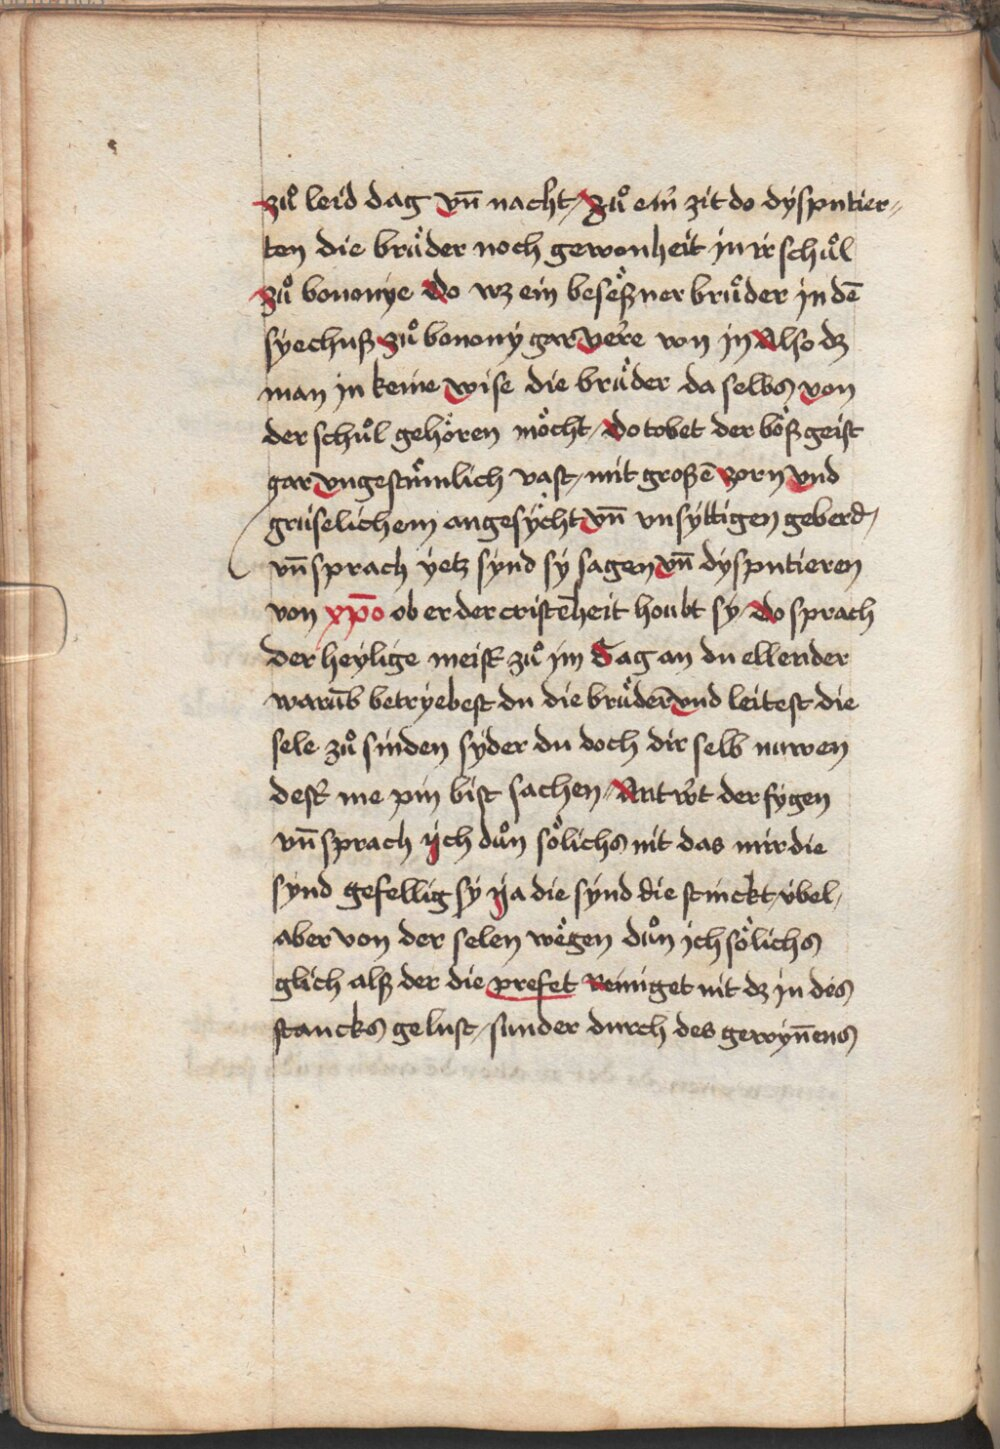 zuͦ leid dag vn̄ nacht / Zuͦ eiñ zit do dysputier=
ten die bruͤder noch gewonheit jn ir schuͦl
Zuͦ bononye Do wz ein beseͤßner bruͤder jn dē
syechuß Zuͦ bonony gar veꝛ̃e von jn Also dz
man jn keine wise die bruͤder da selbs von
der schuͦl gehoͤren moͤcht / Do tobet der boͤß geist
gar vngestuͤmlich vast / mit großē zorn vnd
gruselichem angesycht vn̄ vnsyttigen geberd /
vn̄ sprach yetz synd sy sagen vn̄ dysputieren
von xp̄o ob er der cristēheit houbt sy Do sprach
der heylige meist̃ zuͦ jm Sag an du ellender
warūb betryebest du die bruͤder vnd leitest die
sele zuͦ sinden syder du doch dir selb nuwen
dest̃ me pin bist sachen / Antw̃t der fygen
vn̄ sprach ich duͦn soͤlichs nit das mir die
synd gefellig sy ya die synd die stinckt v̈bel /
aber von der selen weͤgen duͦn jch soͤlichs
glich alß der die prefet Reiniget nit dz jn des
stancks gelust / sunder durch des gewyn̄ens